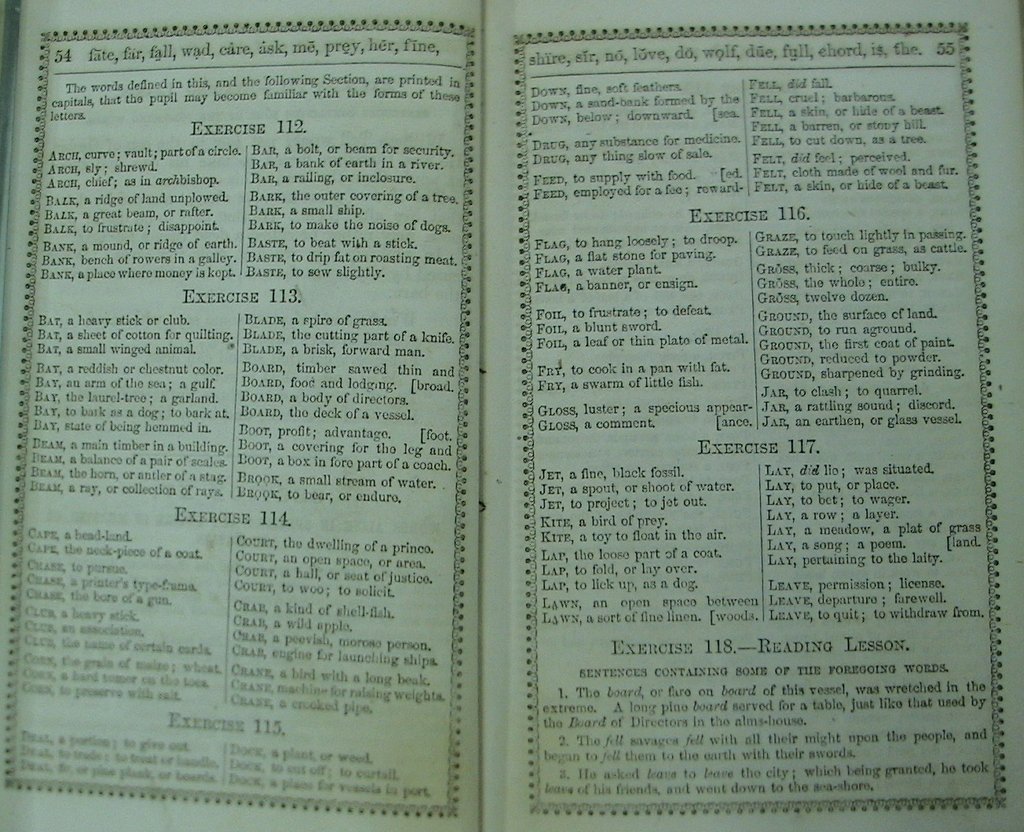 54 fāte, fär, fạll, wạd, câre, ȧsk, mē, prẹy, hẽr, fīne,
The words defined in this, and the following Section, are printed in
capitals, that the pupil may become familiar with the forms of these
letters.
EXERCISE 112.
ARCH, curve; vault; part of a circle.
ARCH, sly; shrewd.
ARCH, chief; as in archbishop.
BALK, a ridge of land unplowed.
BALK, a great beam, or rafter.
BALK, to frustrate; disappoint.
BANK, a mound, or ridge of earth.
BANK, bench of rowers in a galley.
BANK, a place where money is kept.
BAR, a bolt, or beam for security.
BAR, a bank of earth in a river.
BAR, a railing, or inclosure.
BARK, the outer covering of a tree.
BARK, a small ship.
BARK, to make the noise of dogs.
BASTE, to beat with a stick.
BASTE, to drip fat on roasting meat.
BASTE, to sew slightly.
EXERCISE 113.
BAT, a heavy stick or club.
BAT, a sheet of cotton for quilting.
BAT, a small winged animal.
BAY, a reddish or chestnut color.
BAY, an arm of the sea; a gulf.
BAY, the laurel-tree; a garland.
BAY, to bark as a dog; to bark at.
BAY, state of being hemmed in.
BEAM, a main timber in a building.
BEAM, a balance of a pair of scales.
BEAM, the horn, or antler of a stag.
BEAM, a ray, or collection of rays.
BLADE, a spire of grass.
BLADE, the cutting part of a knife.
BLADE, a brisk, forward man.
BOARD, timber sawed thin and
BOARD, food and lodging. [broad.
BOARD, a body of directors.
BOARD, the deck of a vessel.
BOOT, profit; advantage. [foot.
BOOT, a covering for the leg and
BOOT, a box in fore part of a coach.
BROOK, a small stream of water.
BROOK, to bear, or endure.
EXERCISE 114.
CAPE, a head-land.
CAPE, the neck-piece of a coat.
CHASE, to pursue.
CHASE, a printer's type-frame.
CHASE, the bore of a gun.
CLUB, a heavy stick.
CLUB, an association.
CLUB, the name of certain cards.
CORN, the grain of maize; wheat.
CORN, a hard tumor on the toes.
CORN, to preserve with salt.
COURT, the dwelling of a prince.
COURT, an open space, or area.
COURT, a hall, or seat of justice.
COURT, to woo; to solicit.
CRAB, a kind of shell-fish.
CRAB, a wild apple.
CRAB, a peevish, morose person.
CRAB, engine for launching ships.
CRANE, a bird with a long beak.
CRANE, machine for raising weights.
CRANE, a crooked pipe.
EXERCISE 115.
DEAL, a portion; to give out.
DEAL, to trade; to treat or handle.
DEAL, fir, or pine plank, or boards.
DOCK, a plant, or weed.
DOCK, to cut off; to curtail.
DOCK, a place for vessels in port.
shīre, sĩr, nō, lȯve, dọ, wọlf, dūe, fụll, chord, is, the. 55
DOWN, fine, soft feathers.
DOWN, a sand-bank formed by the
DOWN, below; downward. [sea.
DRUG, any substance for medicine.
DRUG, any thing slow of sale.
FEED, to supply with food. [ed.
FEED, employed for a fee; reward-
FELL, did fall.
FELL, cruel; barbarous.
FELL, a skin, or hide of a beast.
FELL, a barren, or stony hill.
FELL, to cut down, as a tree.
FELT, did feel; perceived.
FELT, cloth made of wool and fur.
FELT, a skin, or hide of a beast.
EXERCISE 116.
FLAG, to hang loosely; to droop.
FLAG, a flat stone for paving.
FLAG, a water plant.
FLAG, a banner, or ensign.
FOIL, to frustrate; to defeat.
FOIL, a blunt sword.
FOIL, a leaf or thin plate of metal.
FRY, to cook in a pan with fat.
FRY, a swarm of little fish.
GLOSS, luster; a specious appear-
GLOSS, a comment. [ance.
GRAZE, to touch lightly in passing.
GRAZE, to feed on grass, as cattle.
GRŌSS, thick; coarse; bulky.
GRŌSS, the whole; entire.
GRŌSS, twelve dozen.
GROUND, the surface of land.
GROUND, to run aground.
GROUND, the first coat of paint.
GROUND, reduced to powder.
GROUND, sharpened by grinding.
JAR, to clash; to quarrel.
JAR, a rattling sound; discord.
JAR, an earthen, or glass vessel.
EXERCISE 117.
JET, a fine, black fossil.
JET, a spout, or shoot of water.
JET, to project; to jut out.
KITE, a bird of prey.
KITE, a toy to float in the air.
LAP, the loose part of a coat.
LAP, to fold, or lay over.
LAP, to lick up, as a dog.
LAWN, an open space between
LAWN, a sort of fine linen. [woods.
LAY, did lie; was situated.
LAY, to put, or place.
LAY, to bet; to wager.
LAY, a row; a layer.
LAY, a meadow, a plat of grass
LAY, a song; a poem. [land.
LAY, pertaining to the laity.
LEAVE, permission; license.
LEAVE, departure; farewell.
LEAVE, to quit; to withdraw from.
EXERCISE 118.—READING LESSON.
SENTENCES CONTAINING SOME OF THE FOREGOING WORDS.
1. The board, or fare on board of this vessel, was wretched in the
extreme. A long pine board served for a table, just like that used by
the Board of Directors in the alms-house.
2. The fell savages fell with all their might upon the people, and
began to fell them to the earth with their swords.
3. He asked leave to leave the city; which being granted, he took
leave of his friends, and went down to the sea-shore.